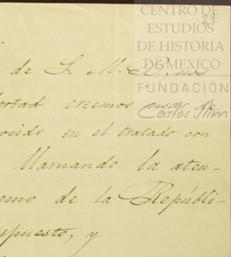 CENTRO DE
ESTUDIOS
DE HISTORIA
DE MEXICO
FUNDACIÓN
Carlos Slim
29
de S. M. B. nos
libertad creemos usar de
en el tratado con
llamando la aten-
de la Repúbli-
puesto, y